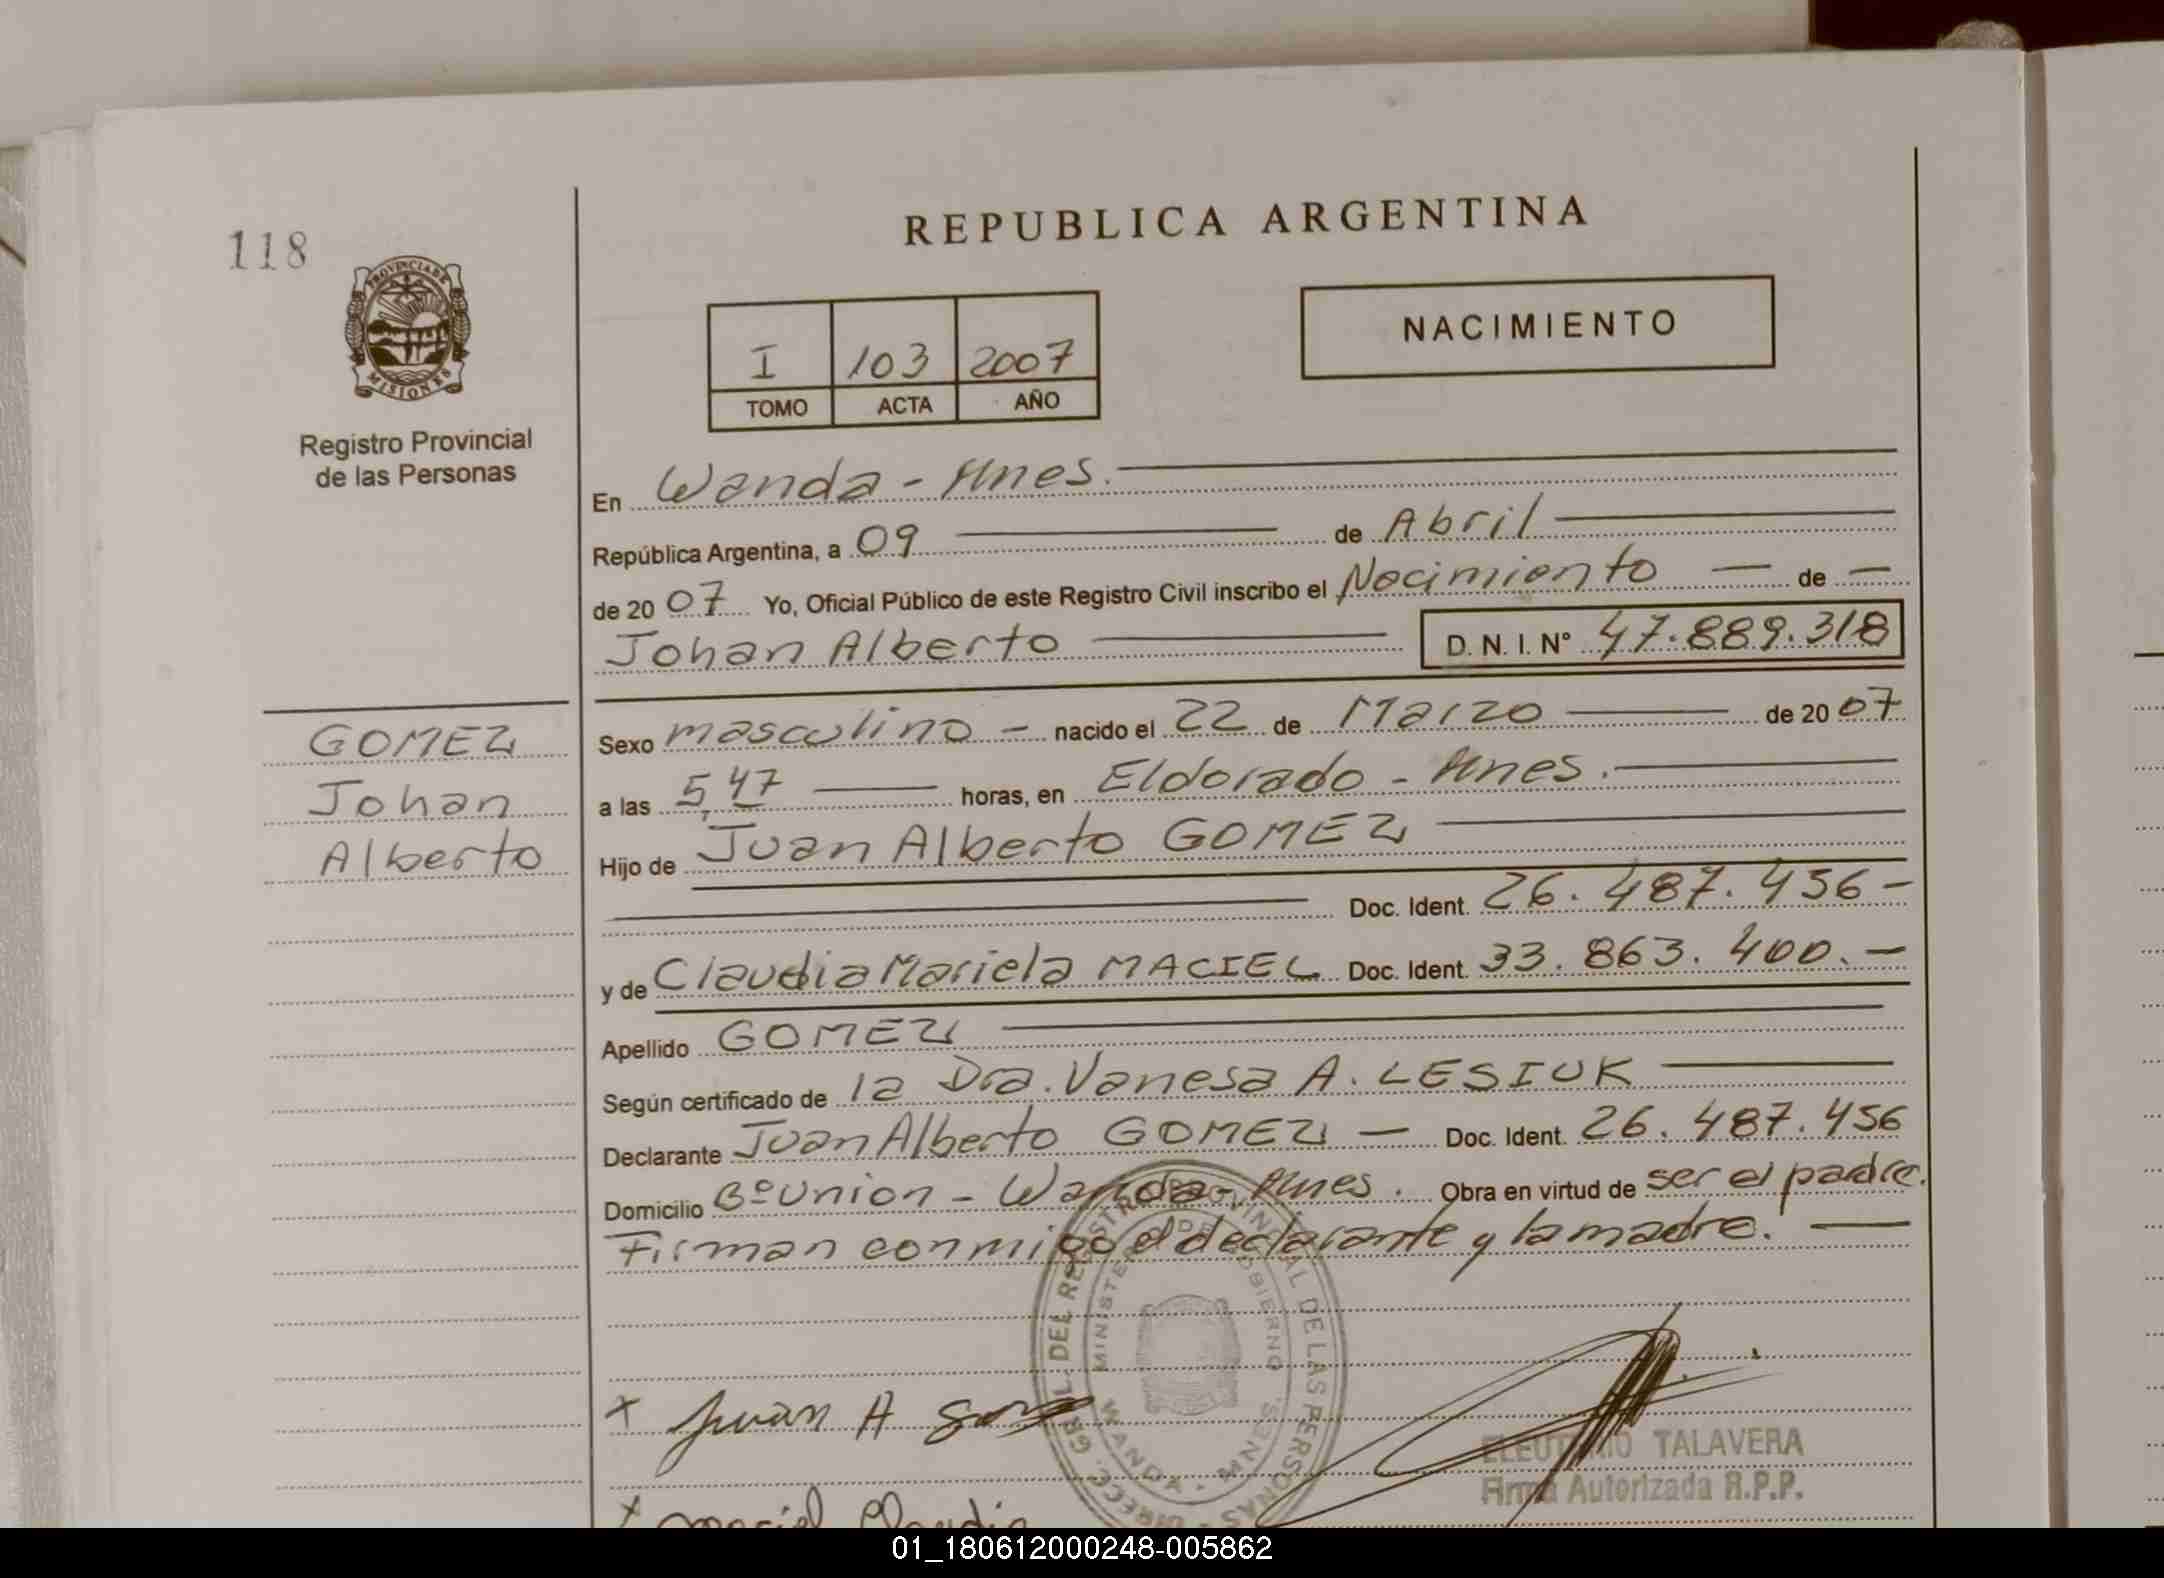 118
REPUBLICA ARGENTINA
PROVINCIA DE
MISIONES
Registro Provincial
de las Personas
I 103 2007
TOMO ACTA AÑO
NACIMIENTO
En Wanda - Mnes.
República Argentina, a 09 de Abril
de 20 07 Yo, Oficial Público de este Registro Civil inscribo el Nacimiento — de —
Johan Alberto D. N. I. Nº 47.889.318
GOMEZ
Johan
Alberto
Sexo masculino - nacido el 22 de Marzo de 20 07
a las 5,47 horas, en Eldorado - Mnes.
Hijo de Juan Alberto GOMEZ
Doc. Ident. 26.487.456-
y de Claudia Mariela MACIEL Doc. Ident. 33.863.400.-
Apellido GOMEZ
Según certificado de la Dra. Vanesa A. LESIUK
Declarante Juan Alberto GOMEZ — Doc. Ident. 26.487.456
Domicilio Bº Union - Wanda - Mnes. Obra en virtud de ser el padre.
Firman conmigo el declarante y la madre.
DIRECC. GRAL. DEL REGISTRO PROVINCIAL DE LAS PERSONAS
MINISTERIO DE GOBIERNO
WANDA - MNES.
x Juan A
ELEUTERIO TALAVERA
Firma Autorizada R.P.P.
x Maciel Claudia
01_180612000248-005862